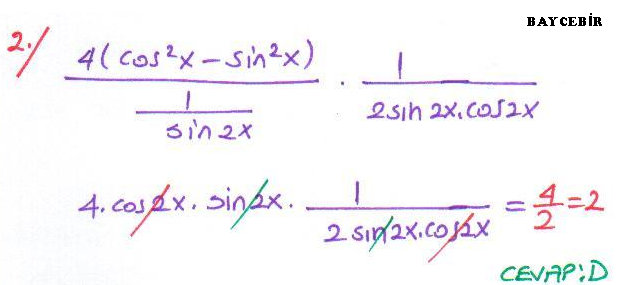 BAYCEBİR
2./ 4(cos²x - sin²x) / (1 / sin2x) · 1 / (2sin2x.cos2x)
4.cos2x. sin2x. 1 / (2sin2x.cos2x) = 4/2 = 2
CEVAP:D